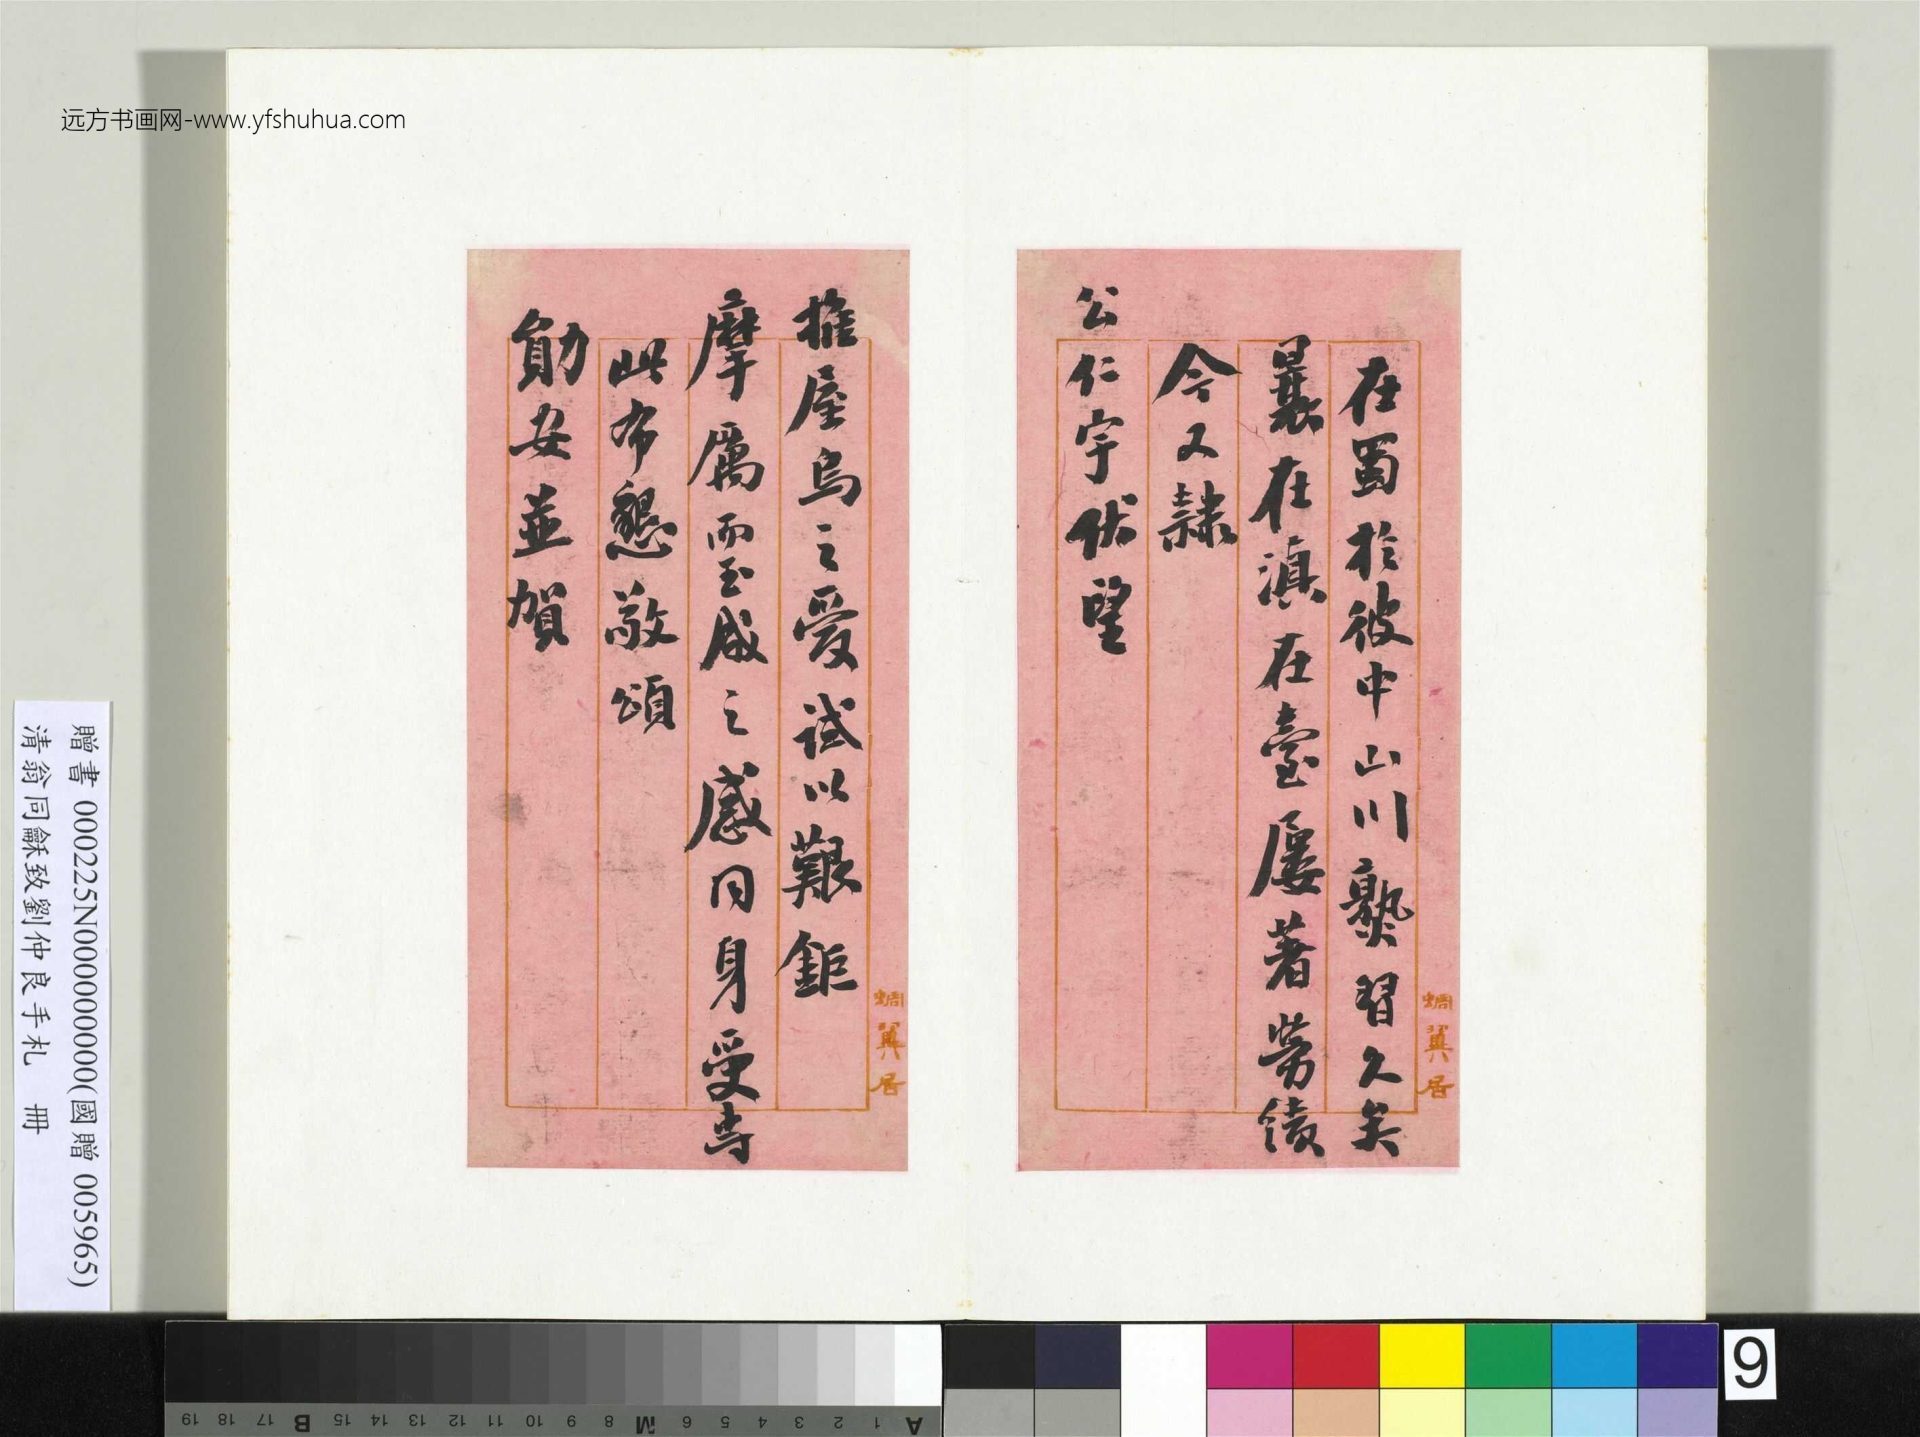 远方书画网-www.yfshuhua.com
在蜀於彼中山川熟習久矣
曩在滇在臺屢著勞績
今又隸
公仁宇伏望
蜩翼居
推屋烏之愛試以艱鉅
摩厲而玉成之感同身受專
此布懇敬頌
勛安並賀
蜩翼居
贈書 000225N000000000(國贈 005965)
清翁同龢致劉仲良手札 冊
A 1 2 3 4 5 6 M 8 9 10 11 12 13 14 15 B 17 18 19
9